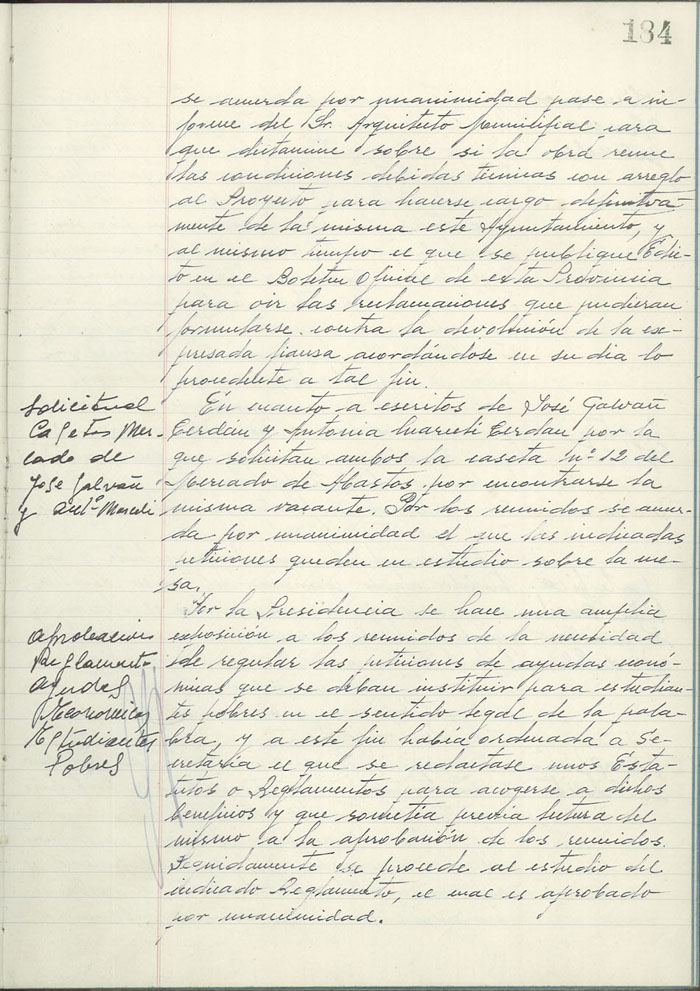 184
se acuerda por unanimidad pase a in-
forme del Sr. Arquitecto Municipal para
que dictamine sobre si la obra reune
las condiciones debidas técnicas con arreglo
al Proyecto para hacerse cargo definitiva-
mente de la misma este Ayuntamiento, y
al mismo tiempo el que se publique Edic-
to en el Boletin Oficial de esta Provincia
para oir las reclamaciones que pudieran
formularse contra la devolución de la ex-
presada fianza acordándose en su dia lo
procedente a tal fin.
Solicitud
Casetas Mer-
cado de
Jose Galvañ
y Antª
En cuanto a escritos de José Galvañ
Cerdán y Antonia Cerdan por la
que solicitan ambos la caseta nº 12 del
Mercado de Abastos por encontrarse la
misma vacante. Por los reunidos se acuer-
da por unanimidad el que las indicadas
peticiones queden en estudio sobre la me-
sa.
aprobacion
Reglamento
Ayudas
Economicas
Estudiantes
Pobres
Por la Presidencia se hace una amplia
exposición a los reunidos de la necesidad
de regular las peticiones de ayudas econó-
micas que se deban instituir para estudian-
tes pobres en el sentido legal de la pala-
bra, y a este fin habia ordenado a Se-
cretaría el que se redactase unos Esta-
tutos o Reglamentos para acogerse a dichos
beneficios y que sometia previa lectura del
mismo a la aprobación de los reunidos.
Seguidamente se procede al estudio del
indicado Reglamento, el cual es aprobado
por unanimidad.